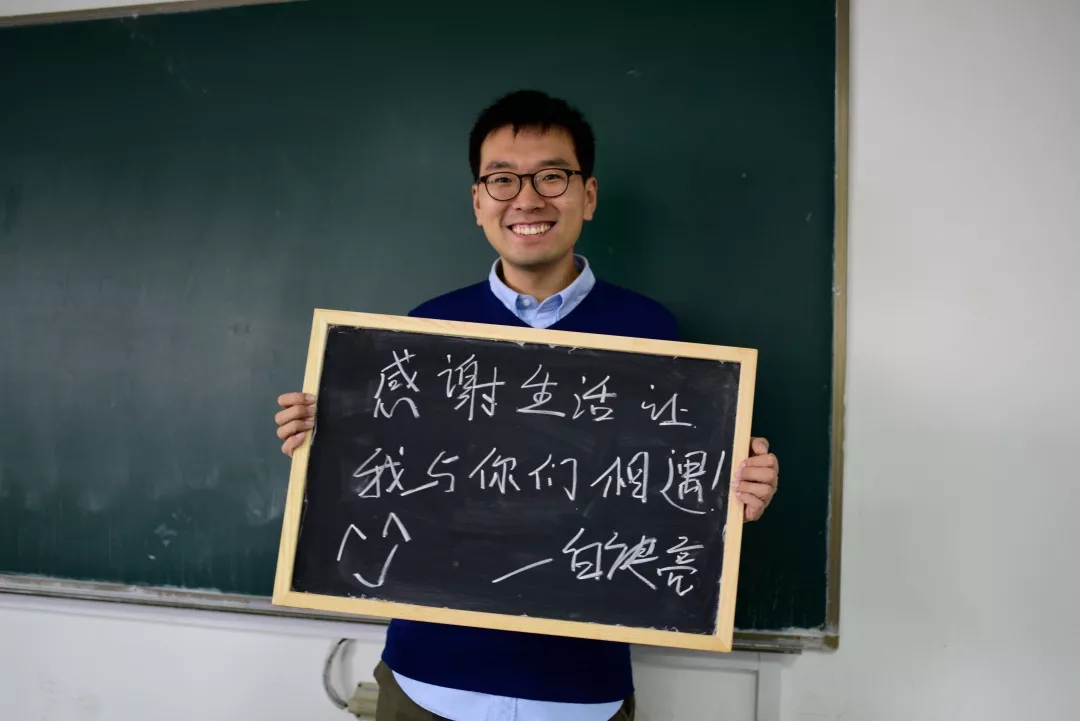 感谢生活让
我与你们相遇!
—白 亮